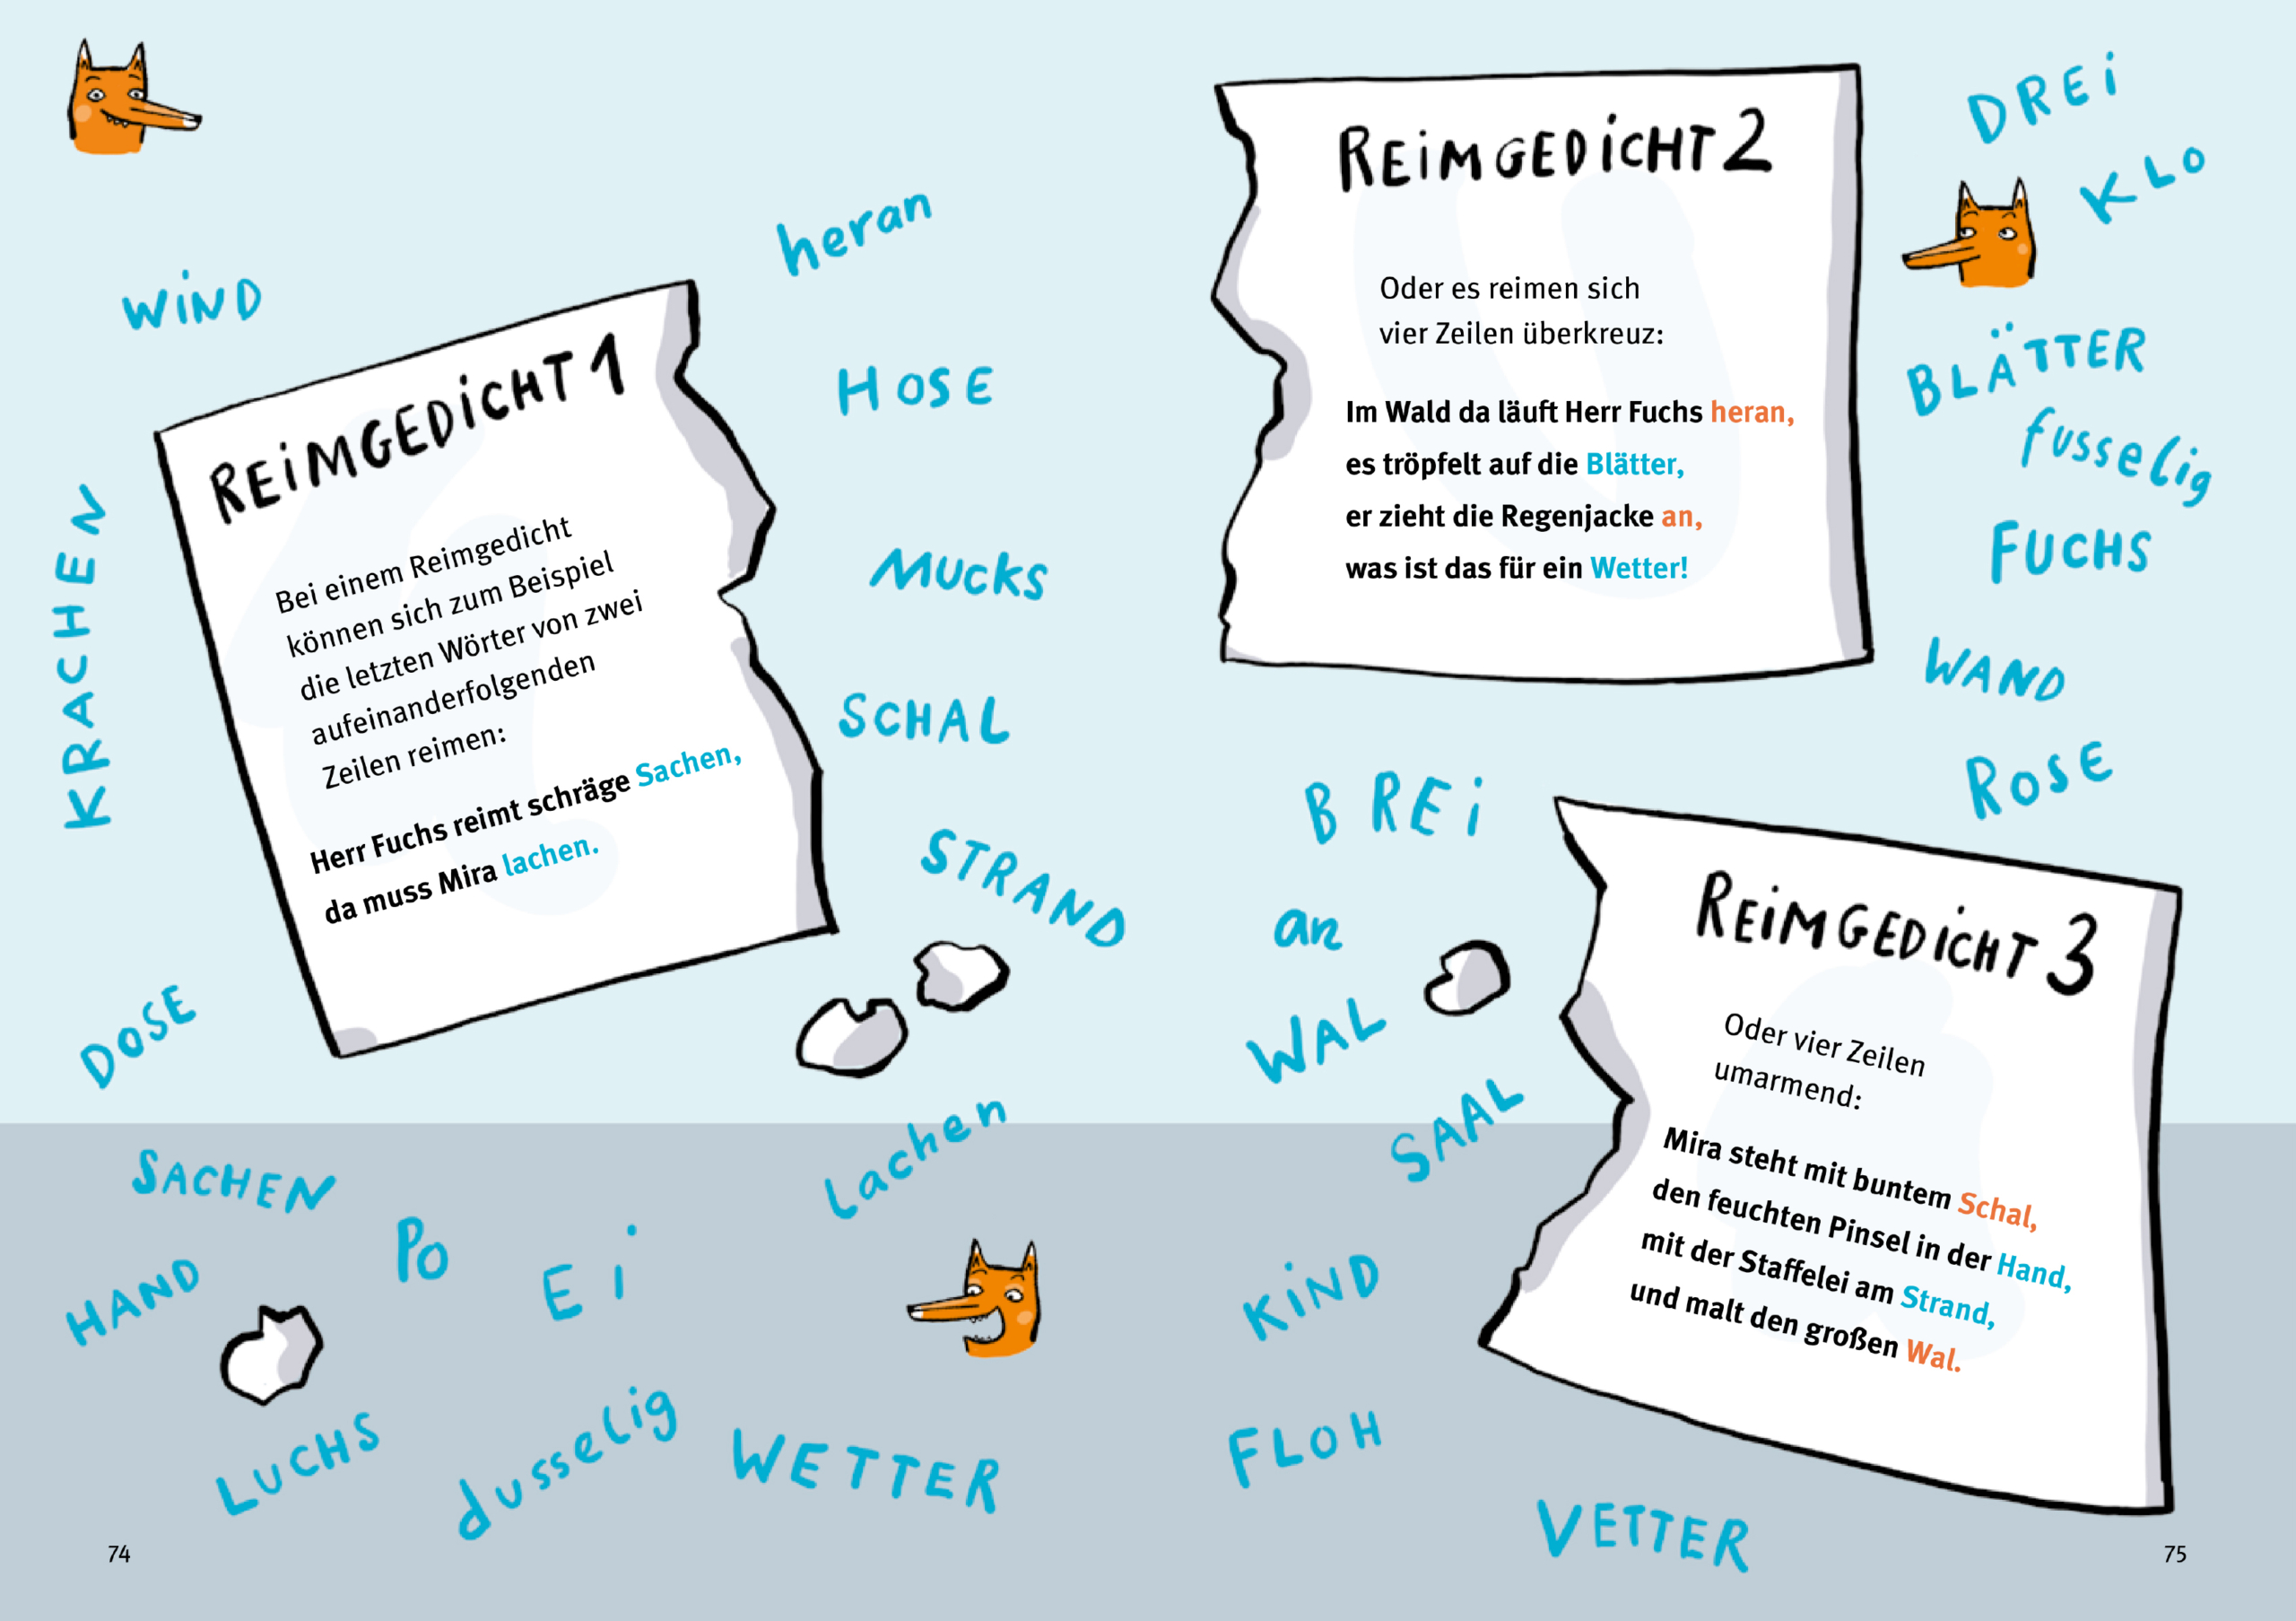 WiND
heran
HOSE
KRACHEN
REiMGEDiCHT 1
Bei einem Reimgedicht
können sich zum Beispiel
die letzten Wörter von zwei
aufeinanderfolgenden
Zeilen reimen:
Herr Fuchs reimt schräge Sachen,
da muss Mira lachen.
Mucks
SCHAL
STRAND
DOSE
SACHEN
HAND
Po
Ei
Lachen
LUCHS
dusselig
WETTER
74
REiMGEDiCHT 2
Oder es reimen sich
vier Zeilen überkreuz:
Im Wald da läuft Herr Fuchs heran,
es tröpfelt auf die Blätter,
er zieht die Regenjacke an,
was ist das für ein Wetter!
DREi
KLO
BLÄTTER
fusselig
FUCHS
WAND
ROSE
BREi
an
WAL
SAAL
REiMGEDiCHT 3
Oder vier Zeilen
umarmend:
Mira steht mit buntem Schal,
den feuchten Pinsel in der Hand,
mit der Staffelei am Strand,
und malt den großen Wal.
KiND
FLOH
VETTER
75